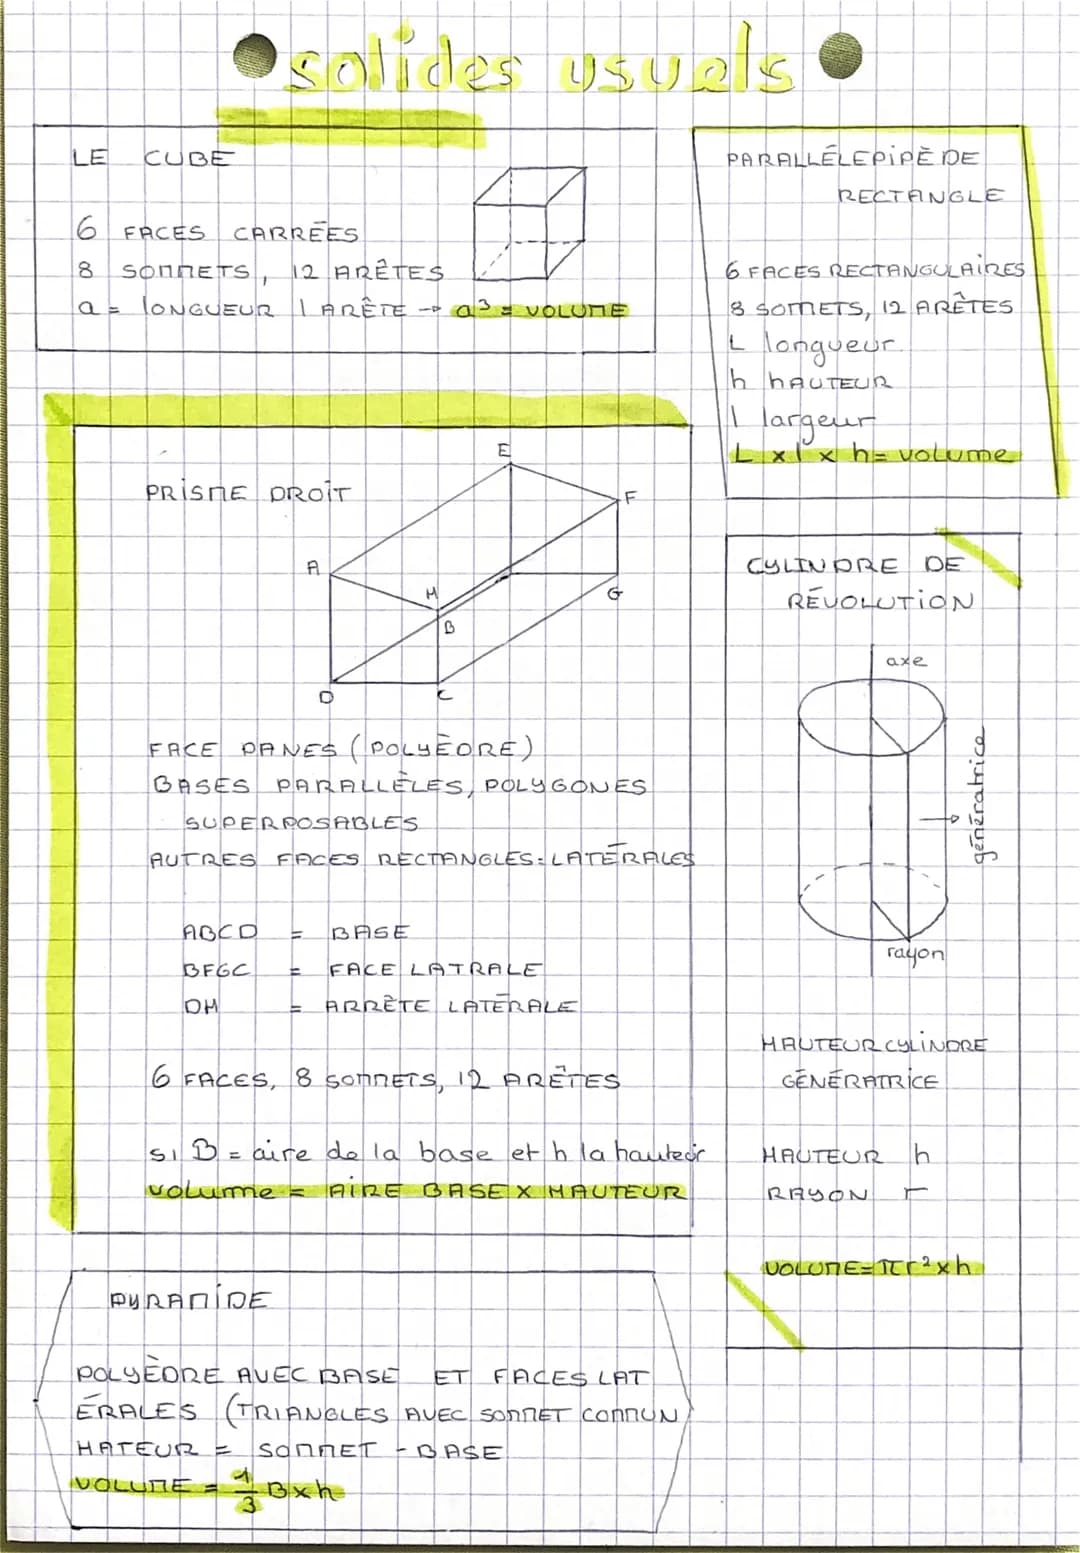 solides usuels
LE CUBE
6 FACES CARRÉES
8 SOMMETS, 12 ARÊTES
a = lONGUEUR 1 ARÊTE → a³ = VOLUME
PARALLÉLEPIPÈDE
RECTANGLE
6 FACES RECTANGULAIRES
8 SOMETS, 12 ARÊTES
L longueur
h hAUTEUR
l largeur
L x l x h = volume
PRISME DROIT
E
F
A
H
G
B
D
C
FACE PANES (POLYÈDRE)
BASES PARALLÈLES, POLYGONES
SUPERPOSABLES
AUTRES FACES RECTANGLES = LATÉRALES
ABCD = BASE
BFGC = FACE LATRALE
DH = ARRÊTE LATÉRALE
6 FACES, 8 SOMMETS, 12 ARÊTES
SI B = aire de la base et h la hauteur
volume = AIRE BASE X HAUTEUR
CYLINDRE DE
RÉVOLUTION
axe
génératrice
rayon
HAUTEUR CYLINDRE
GÉNÉRATRICE
HAUTEUR h
RAYON r
VOLUME = πr² x h
PYRAMIDE
POLYÈDRE AVEC BASE ET FACES LAT
ÉRALES (TRIANGLES AVEC SOMMET COMMUN
HATEUR = SOMMET - BASE
VOLUME = 1/3 B x h